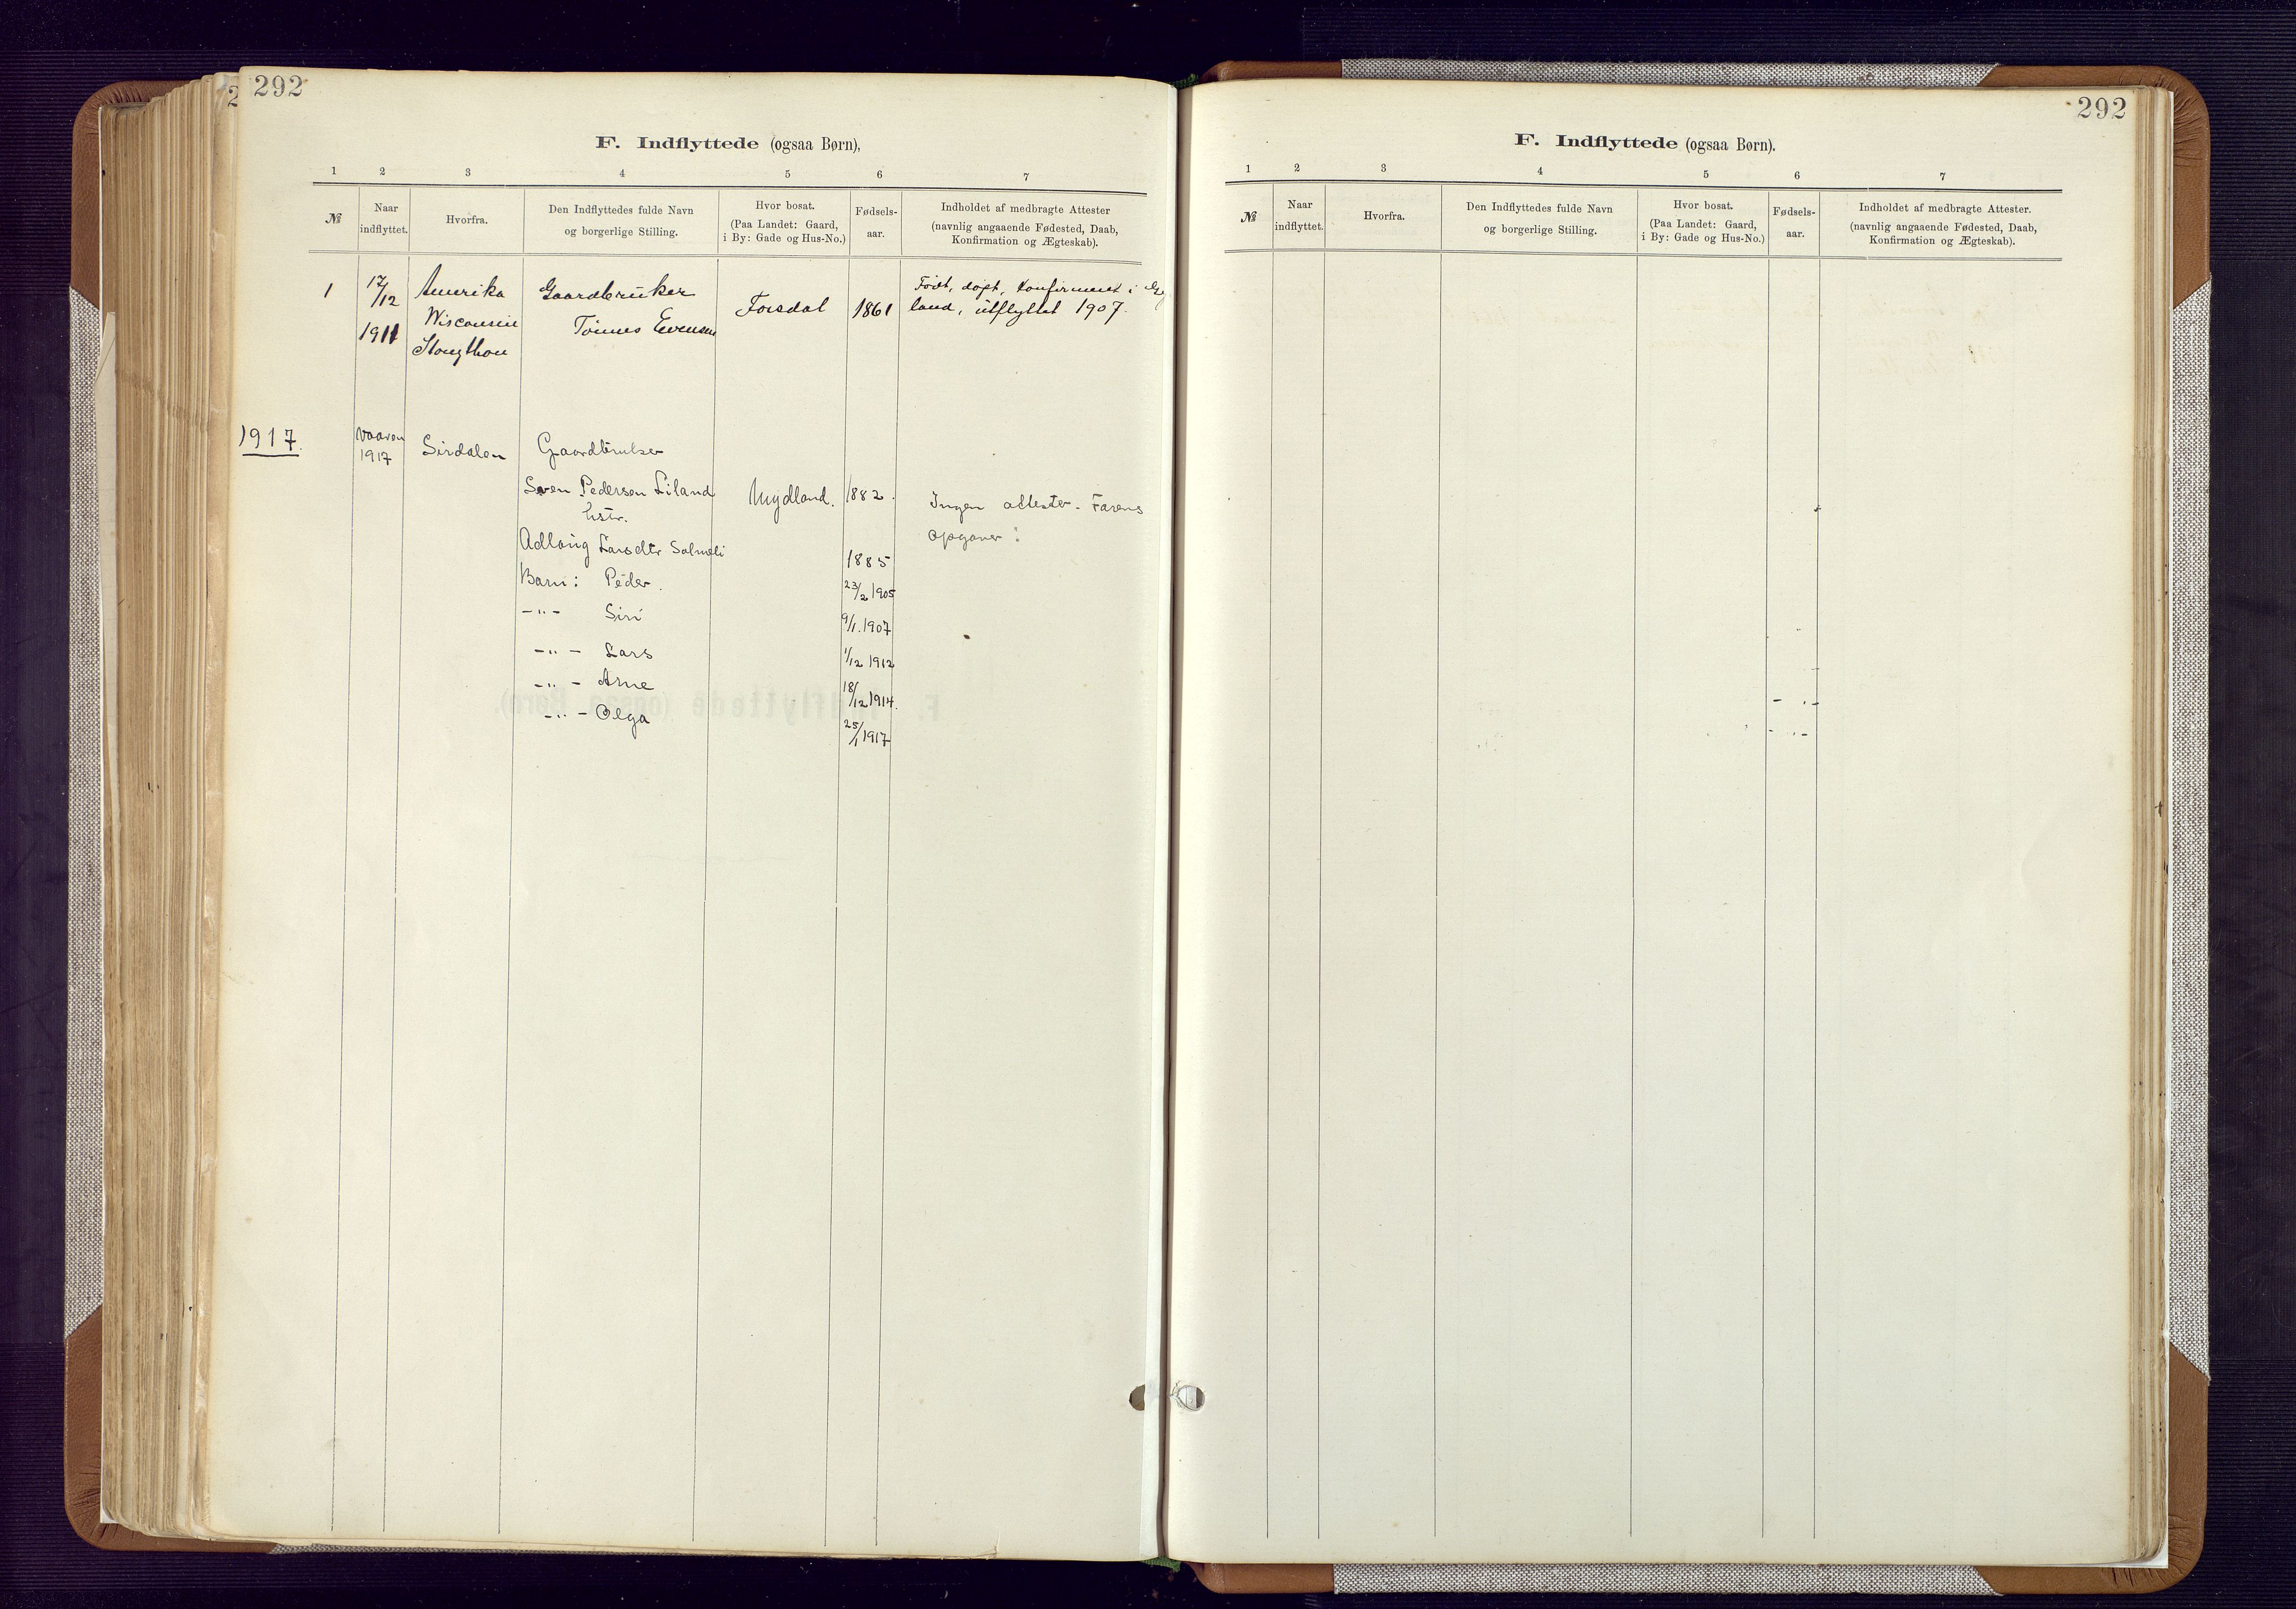 292
F. Indflyttede (ogsaa Børn),
1 2 3 4 5 6 7
№
Naar indflyttet.
Hvorfra.
Den Indflyttedes fulde Navn
og borgerlige Stilling.
Hvor bosat.
(Paa Landet: Gaard,
i By: Gade og Hus-No.)
Fødsels-
aar.
Indholdet af medbragte Attester
(navnlig angaaende Fødested, Daab,
Konfirmation og Ægteskab).
1 17/12 Amerika Gaardbruker Forsdal 1861 Født, døpt, konfirmeret i
1911 Wisconsin Tønnes Evensen land, utflyttet 1907.
Stoughton
1917. Vaaren Sirdalen Gaardbruker
1917
Sven Pedersen Liland Mydland. 1882. Ingen attester. Farens
hstr. opgaver:
Adlaug Larsdtr Salmeli 1885
Barn: Peder. 23/2 1905
-"- Siri 9/1.1907
-"- Lars 1/12 1912
-"- Arne 18/12 1914.
-"- Olga 25/1 1917
292
F. Indflyttede (ogsaa Børn).
1 2 3 4 5 6 7
№
Naar
indflyttet.
Hvorfra.
Den Indflyttedes fulde Navn
og borgerlige Stilling.
Hvor bosat.
(Paa Landet: Gaard,
i By: Gade og Hus-No.)
Fødsels-
aar.
Indholdet af medbragte Attester.
(navnlig angaaende Fødested, Daab,
Konfirmation og Ægteskab).